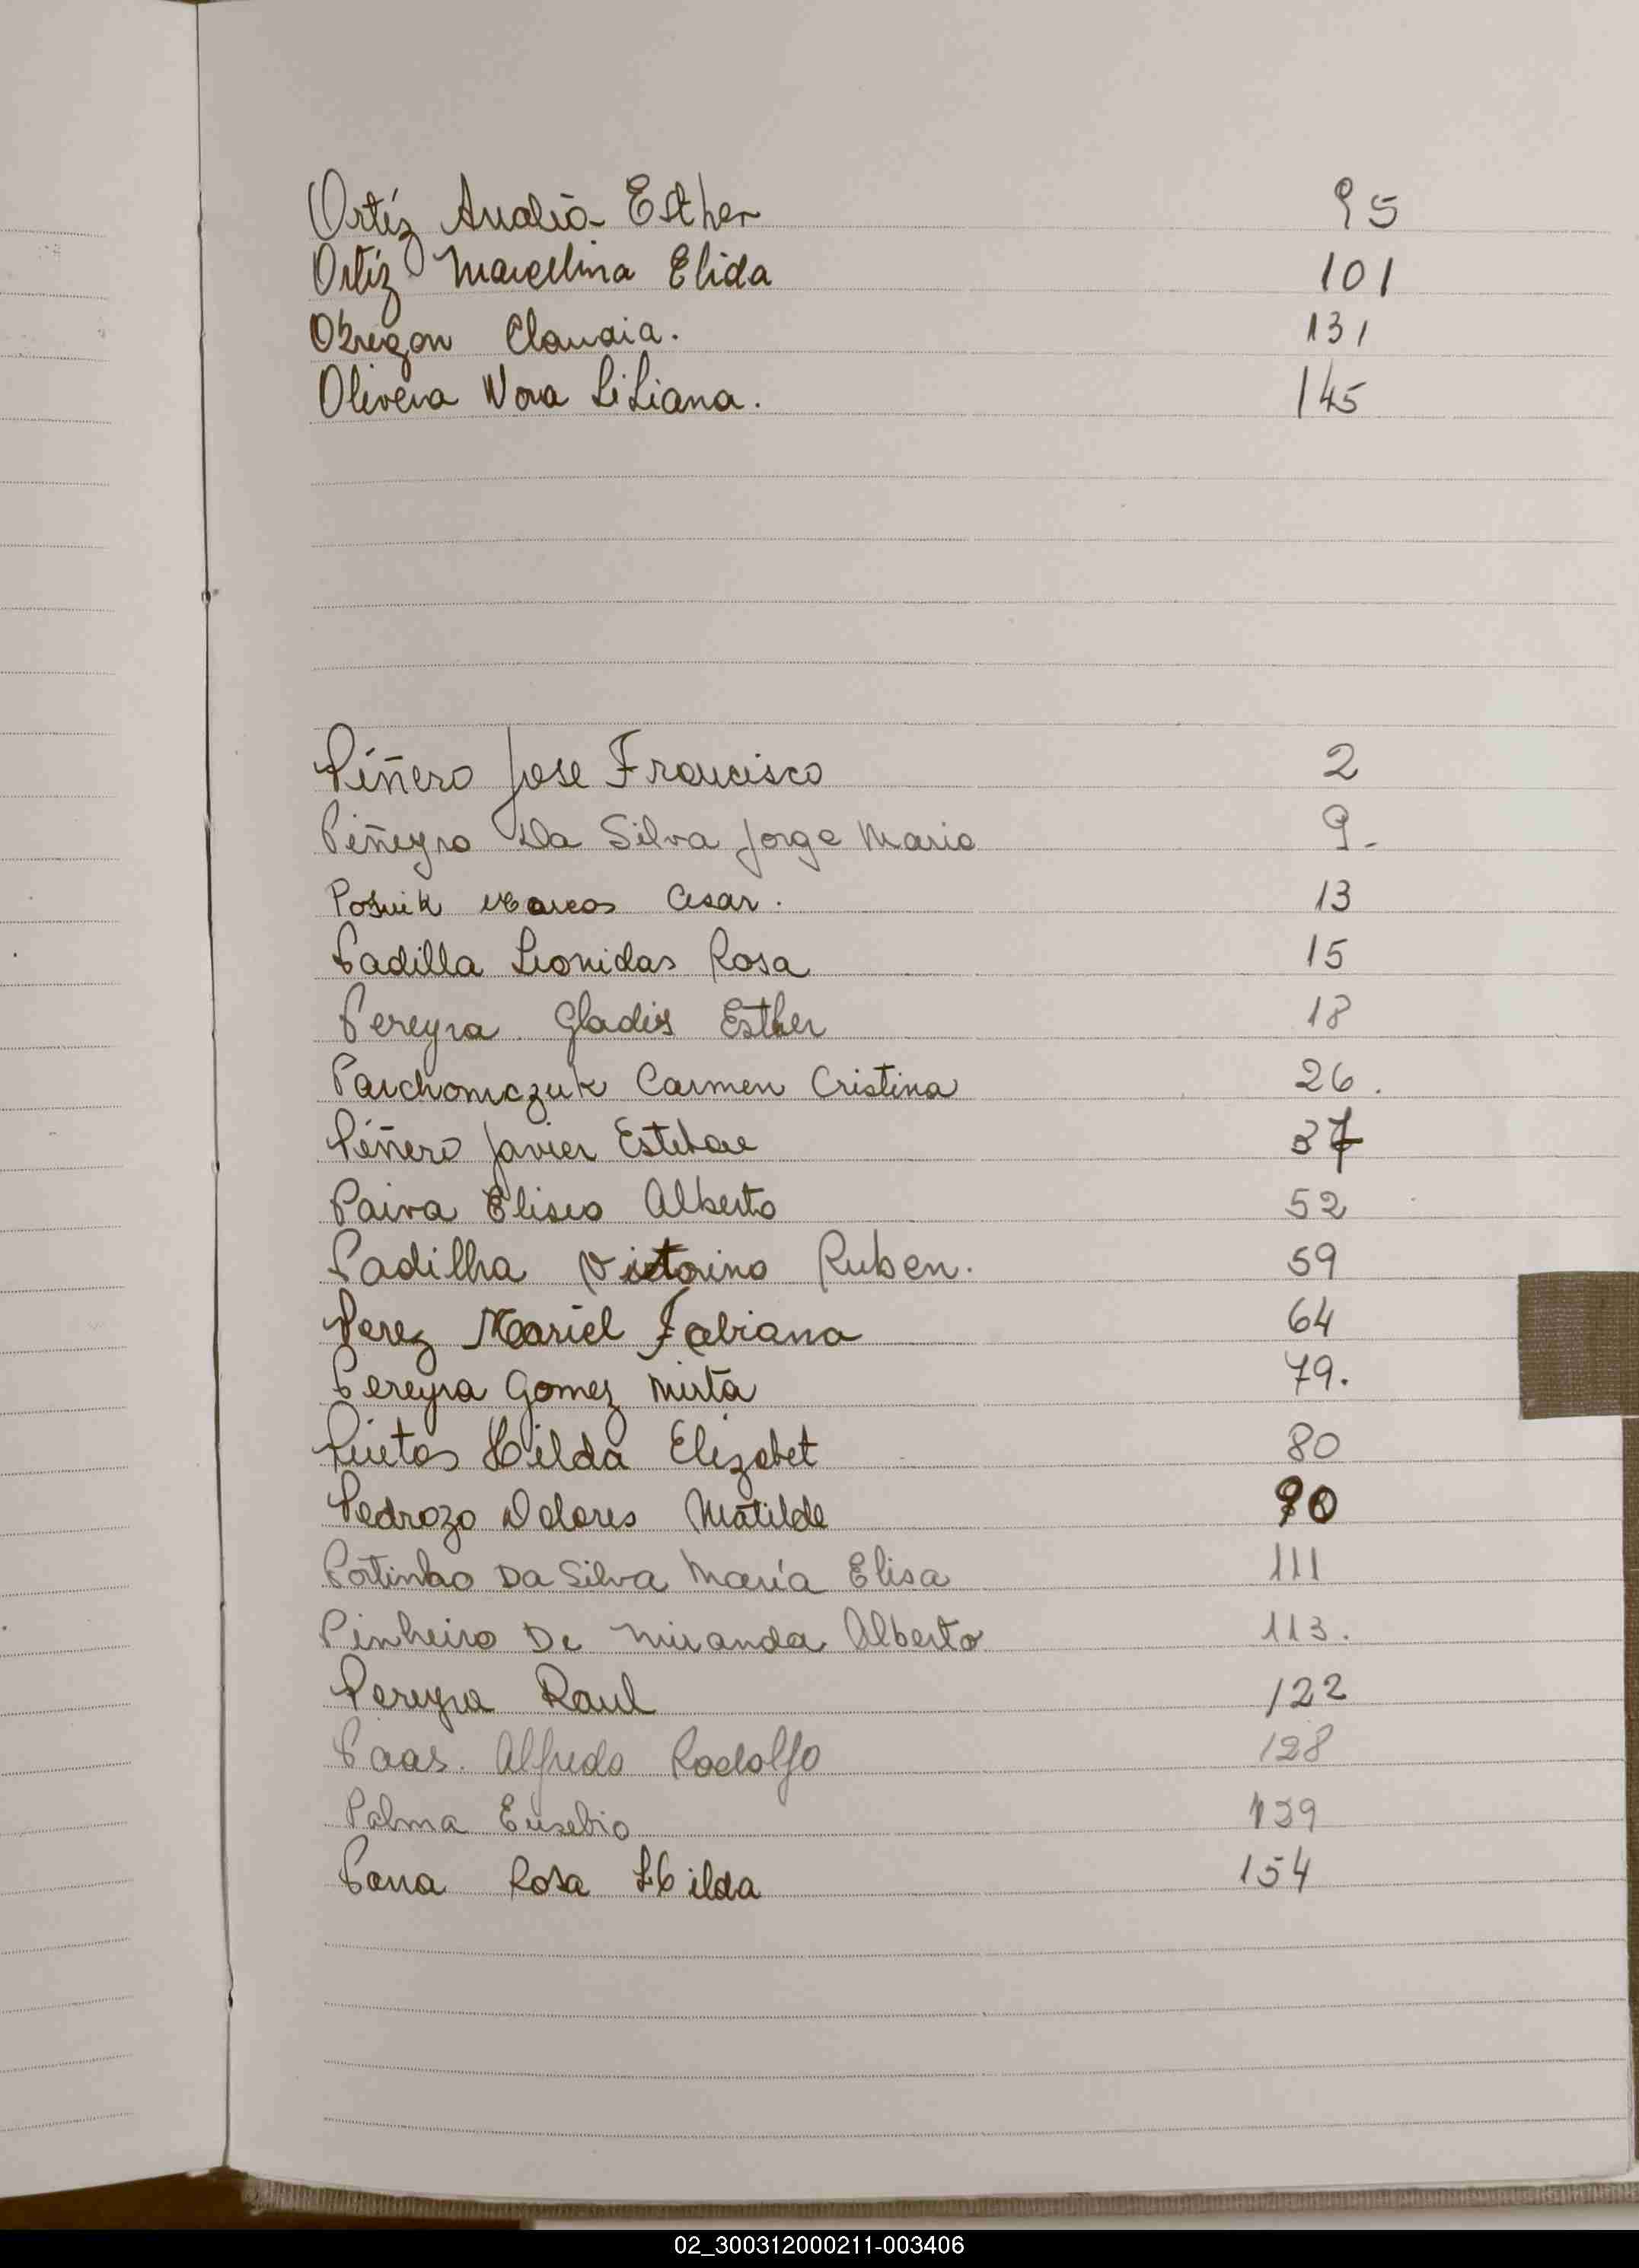 Ortíz Analia Esther 95
Ortíz Marcelina Elida 101
Obregon Claudia. 131
Olivera Nora Liliana. 145
Piñero Jose Francisco 2
Piñeyro Da Silva Jorge Mario 9.-
Posnik Marcos Cesar. 13
Padilla Leonidas Rosa 15
Pereyra Gladis Esther 18
Parchomczuk Carmen Cristina 26.
Piñero Javier Esteban 37
Paiva Eliseo Alberto 52
Padilha Victorino Ruben. 59
Perez Mariel Fabiana 64
Pereyra Gomez Mirta 79.
Pintos Hilda Elizabet 80
Pedrozo Dolores Matilde 90
Portinho Da Silva María Elisa 111
Pinheiro De Miranda Alberto 113.
Pereyra Raul 122
Paas. Alfredo Rodolfo 128
Palma Eusebio 139
Rosa Hilda 154
02_300312000211-003406